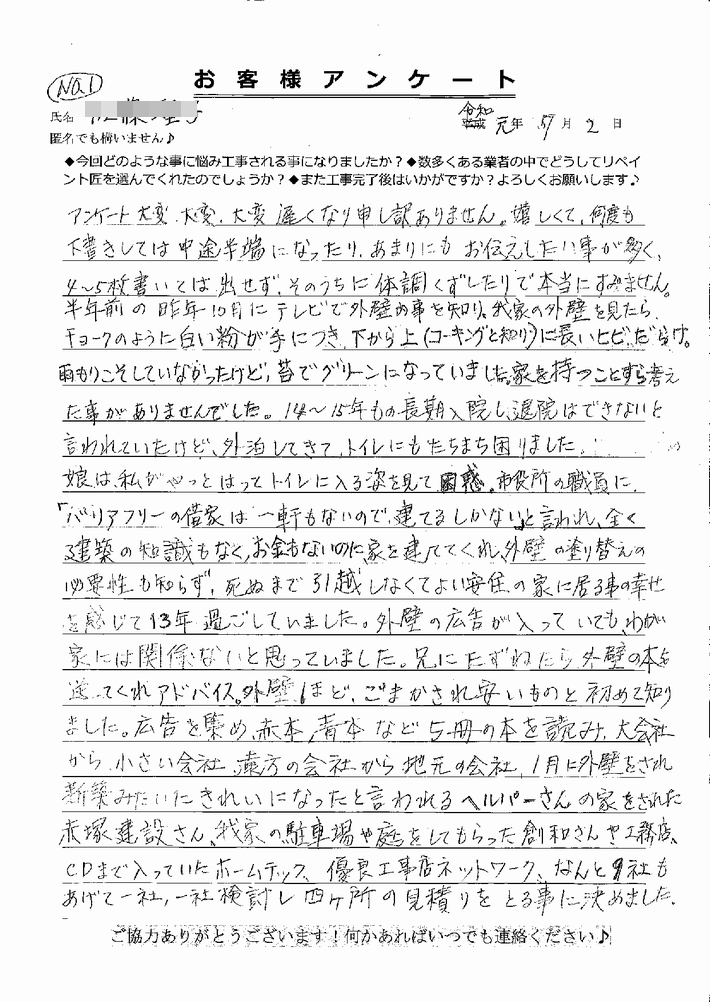 お客様アンケート
NO.1
氏名
令和
平成 元年 5/7月 2日
匿名でも構いません♪
◆今回どのような事に悩み工事される事になりましたか？◆数多くある業者の中でどうしてリペイ
ント匠を選んでくれたのでしょうか？◆また工事完了後はいかがですか？よろしくお願いします♪
アンケート大変、大変、大変遅くなり申し訳ありません。嬉しくて、何度も
下書きしては中途半端になったり、あまりにもお伝えしたい事が多く、
4〜5枚書いては出せず、そのうちに体調くずしたりで本当にすみません。
半年前の昨年10月にテレビで外壁の事を知り、我家の外壁を見たら、
チョークのように白い粉が手につき、下から上(コーキングと知り)に長いヒビだらけ。
雨もりこそしていなかったけど、苔でグリーンになっていました。家を持つことすら考え
た事がありませんでした。14〜15年もの長期入院し、退院はできないと
言われていたけど、外泊してきて、トイレにもたちまち困りました。
娘は、私がやっとはってトイレに入る姿を見て困惑。市役所の職員に、
「バリアフリーの借家は一軒もないので、建てるしかない」と言われ、全く
建築の知識もなく、お金もないのに、家を建ててくれ、外壁の塗り替えの
必要性も知らず、死ぬまで引越しなくてよい安住の家に居る事の幸せ
を感じて13年過ごしていました。外壁の広告が入っていても、わが
家には関係ないと思っていました。兄にたずねたら外壁の本を
送ってくれアドバイス。外壁ほど、ごまかされ安いものと初めて知り
ました。広告を集め、赤本、青本など5冊の本を読み、大会社
から、小さい会社、遠方の会社から地元の会社、1月に外壁をされ
新築みたいにきれいになったと言われるヘルパーさんの家をされた
赤塚建設さん、我家の駐車場や庭をしてもらった創和さんや工務店、
CDまで入っていたホームテック、優良工事店ネットワーク、なんと9社も
あげて一社、一社検討し四ヶ所の見積りをとる事に決めました。
ご協力ありがとうございます！何かあればいつでも連絡ください♪